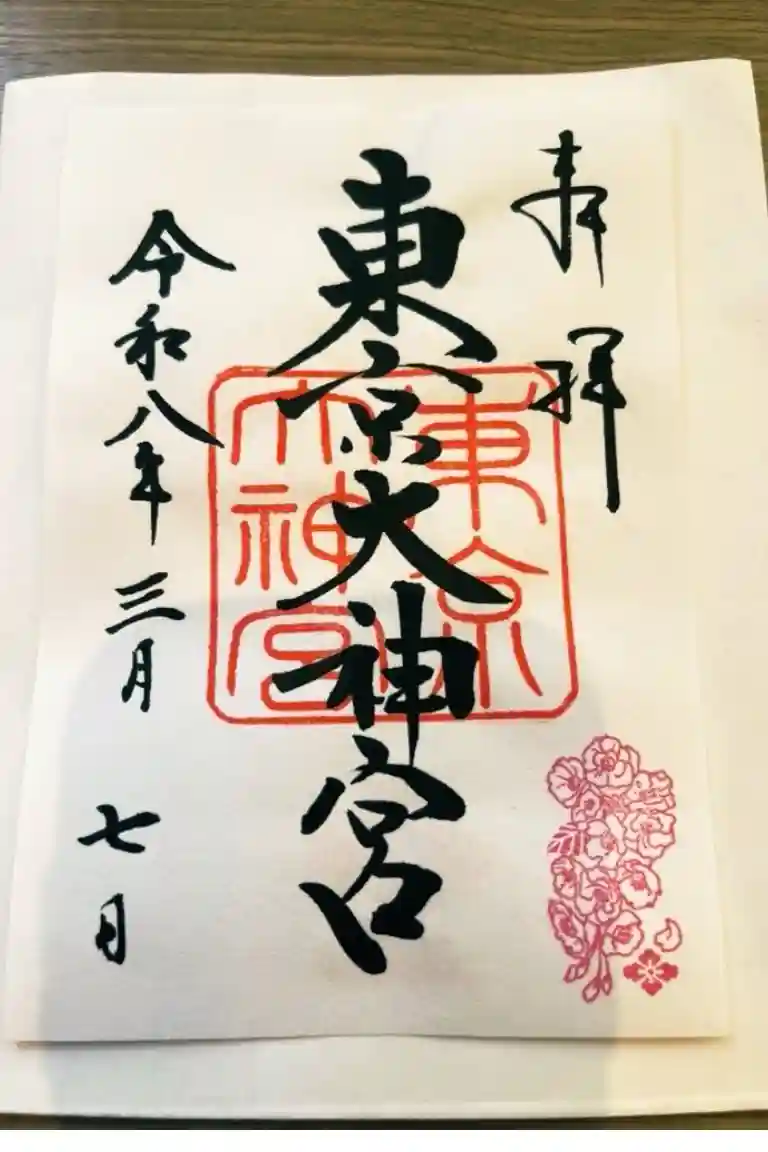 奉拝
東京大神宮
東京
大神宮
令和八年三月七日